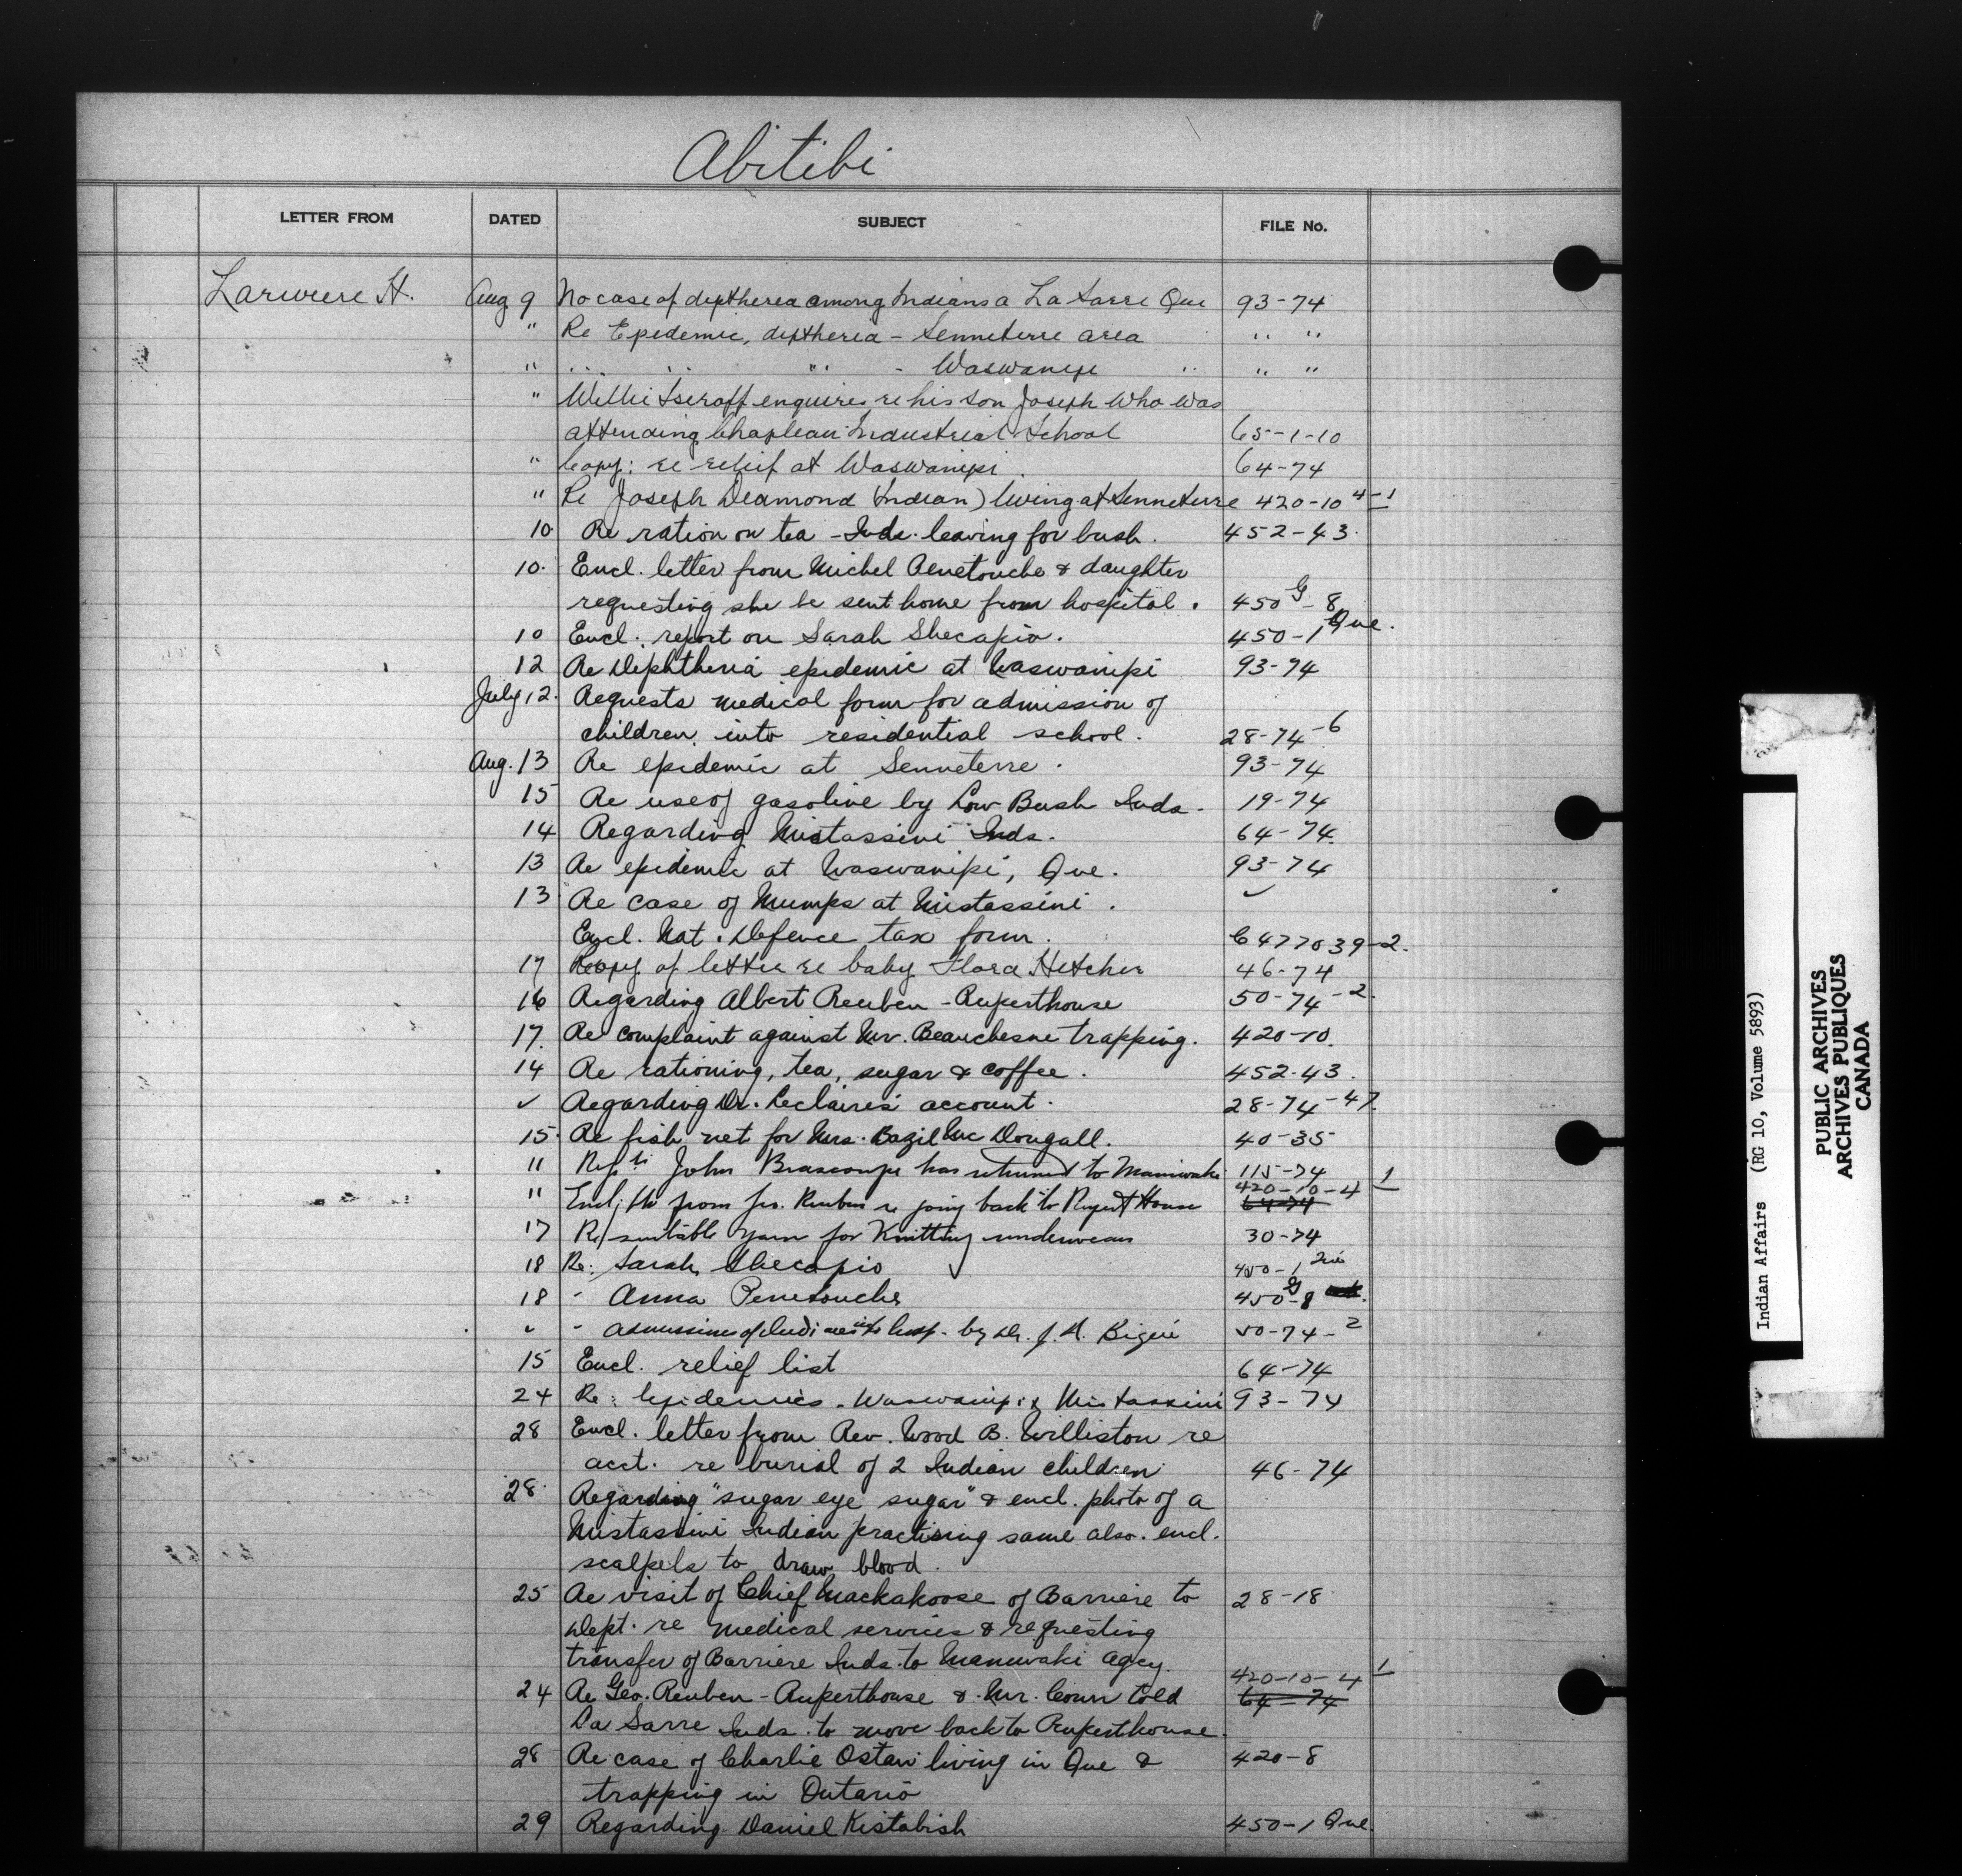 Abitibi
LETTER FROM DATED SUBJECT FILE No.
Lariviere H. Aug 9 No case of deptherea among Indians a La Sarre Que 93-74
" Re Epedemic, deptheria - Senneterre area " "
" " " " - Waswanipi " " "
" Willie enquires re his son Joseph who was
attending Chapleau Industrial School 65-1-10
" Copy: re relief at Waswanipi. 64-74
" Re Joseph Deamond (Indian) living at Senneterre 420-10 4-1
10 Re ration on tea - Inds. leaving for bush. 452-43.
10. Encl. letter from Michel Penetouche & daughter
requesting she be sent home from hospital. 450 G-8
10 Encl. report on Sarah Shecapio. 450-1 Que.
12 Re Diphtheria epidemic at Waswanipi 93-74
July 12. Requests medical form for admission of
children into residential school. 28-74-6
Aug. 13 Re epidemic at Senneterre. 93-74
15 Re use of gasoline by Low Bush Inds. 19-74
14 Regarding Mistassini Inds. 64-74.
13 Re epidemic at Waswanipi, Que. 93-74
13 Re case of Mumps at Mistassini. ✓
Encl. Nat. Defence tax form. C 477039-2.
17 Copy of letter re baby Flora Hetcher 46-74
16 Regarding Albert Reuben - Ruperthouse 50-74-2.
17. Re complaint against Mr. Beauchesne trapping. 420-10.
14 Re rationing, tea, sugar & coffee. 452-43.
✓ Regarding Dr. Leclaires' account. 28-74-47.
15. Re fish net for Mrs. Bazil McDougall. 40-35
11 John Brascoupe has returned to Maniwaki 115-74
11 Encl. from Reuben re going back to Rupert House 420-10-4 1 64-74
17 Re/ suitable yarn for Knitting underwear 30-74
18 Re: Sarah Shecapio 450-1 Que
18 " Anna Penetouche 450 G-8
✓ " Admission of Indians into hosp. by Dr. J. A. 50-74-2
15 Encl. relief list 64-74
24 Re: Epidemics. Waswanipi & Mistassini 93-74
28 Encl. letter from Rev. Wood B. Williston re
acct. re burial of 2 Indian children 46-74
28. Regarding "sugar eye sugar" & encl. photo of a
Mistassini Indian practising same also. encl.
scalpels to draw blood.
25 Re visit of Chief Mackakoose of Barriere to 28-18
Dept. re medical services & requesting
transfer of Barriere Inds. to Maniwaki agcy.
24 Re Geo. Reuben - Ruperthouse & Mr. Couer told 420-10-4 1 64-74
La Sarre Inds. to move back to Ruperthouse.
28 Re case of Charlie Ostaw living in Que & 420-8
trapping in Ontario
29 Regarding Daniel Kistabish 450-1 Que.
Indian Affairs (RG 10, Volume 5893)
PUBLIC ARCHIVES
ARCHIVES PUBLIQUES
CANADA